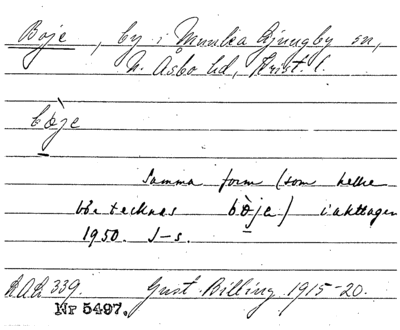 Boje, by i Munka Ljungby sn,
N. Åsbo hd, Krist. l.
bòje
Samma form (som hellre
bör tecknas bòje) iakttagen
1950. I-s.
LAL 339. Gust. Billing 1915-20.
Nr 5497.